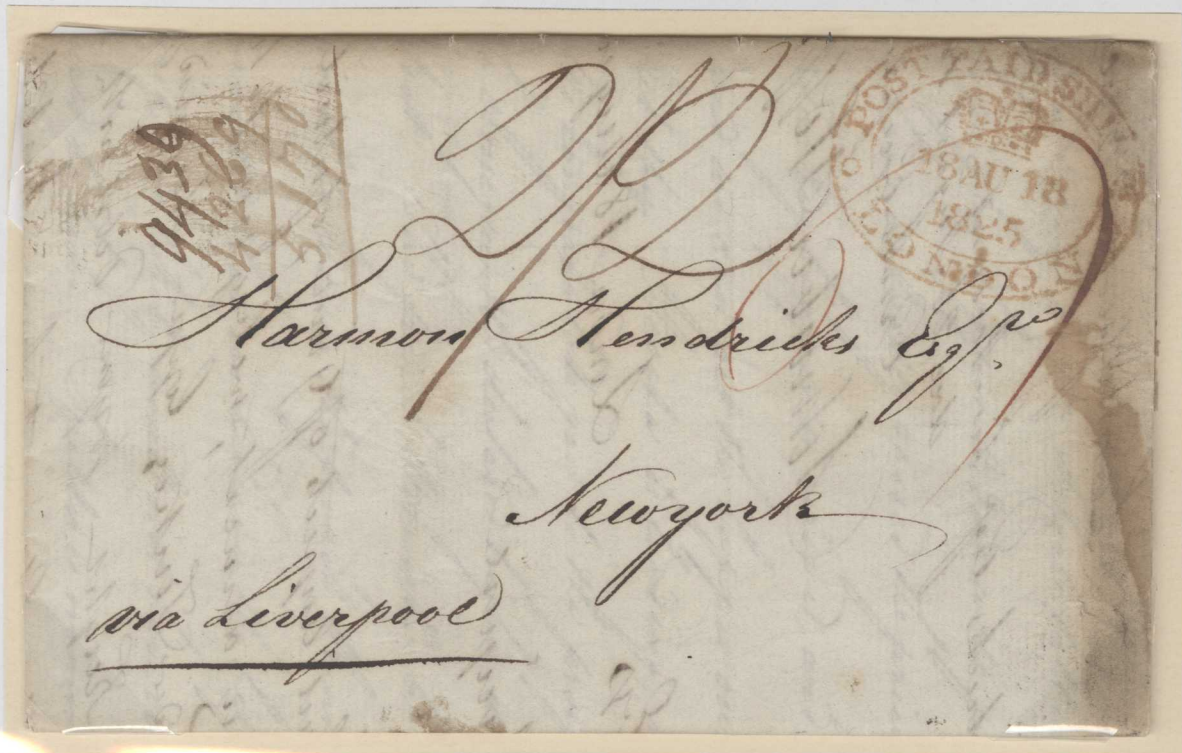 9439
4269
5170
2/2
POST PAID SHI
18 AU 18
1825
LONDON
Harmon Hendricks Esqre
Newyork
via Liverpool